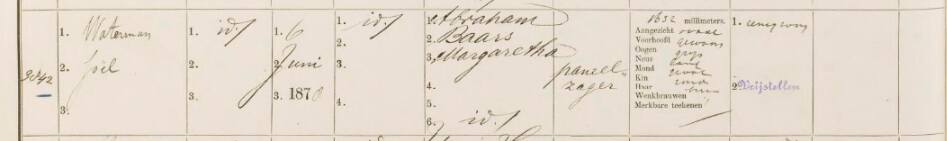 9842
1. Waterman
2. Joël
3.
1. id.
2.
3.
1. 6
2. Juni
3. 1870
1. id.
2.
3.
4.
1. Abraham
2. Baars
3. Margaretha
4.
5.
6. id.
paneel-
zager
1652 millimeters.
Aangezicht ovaal
Voorhoofd gewoon
Oogen grijs
Neus
Mond
Kin rond
Haar bruin
Wenkbrauwen
Merkbare teekenen
1.
2. Vrijstellen